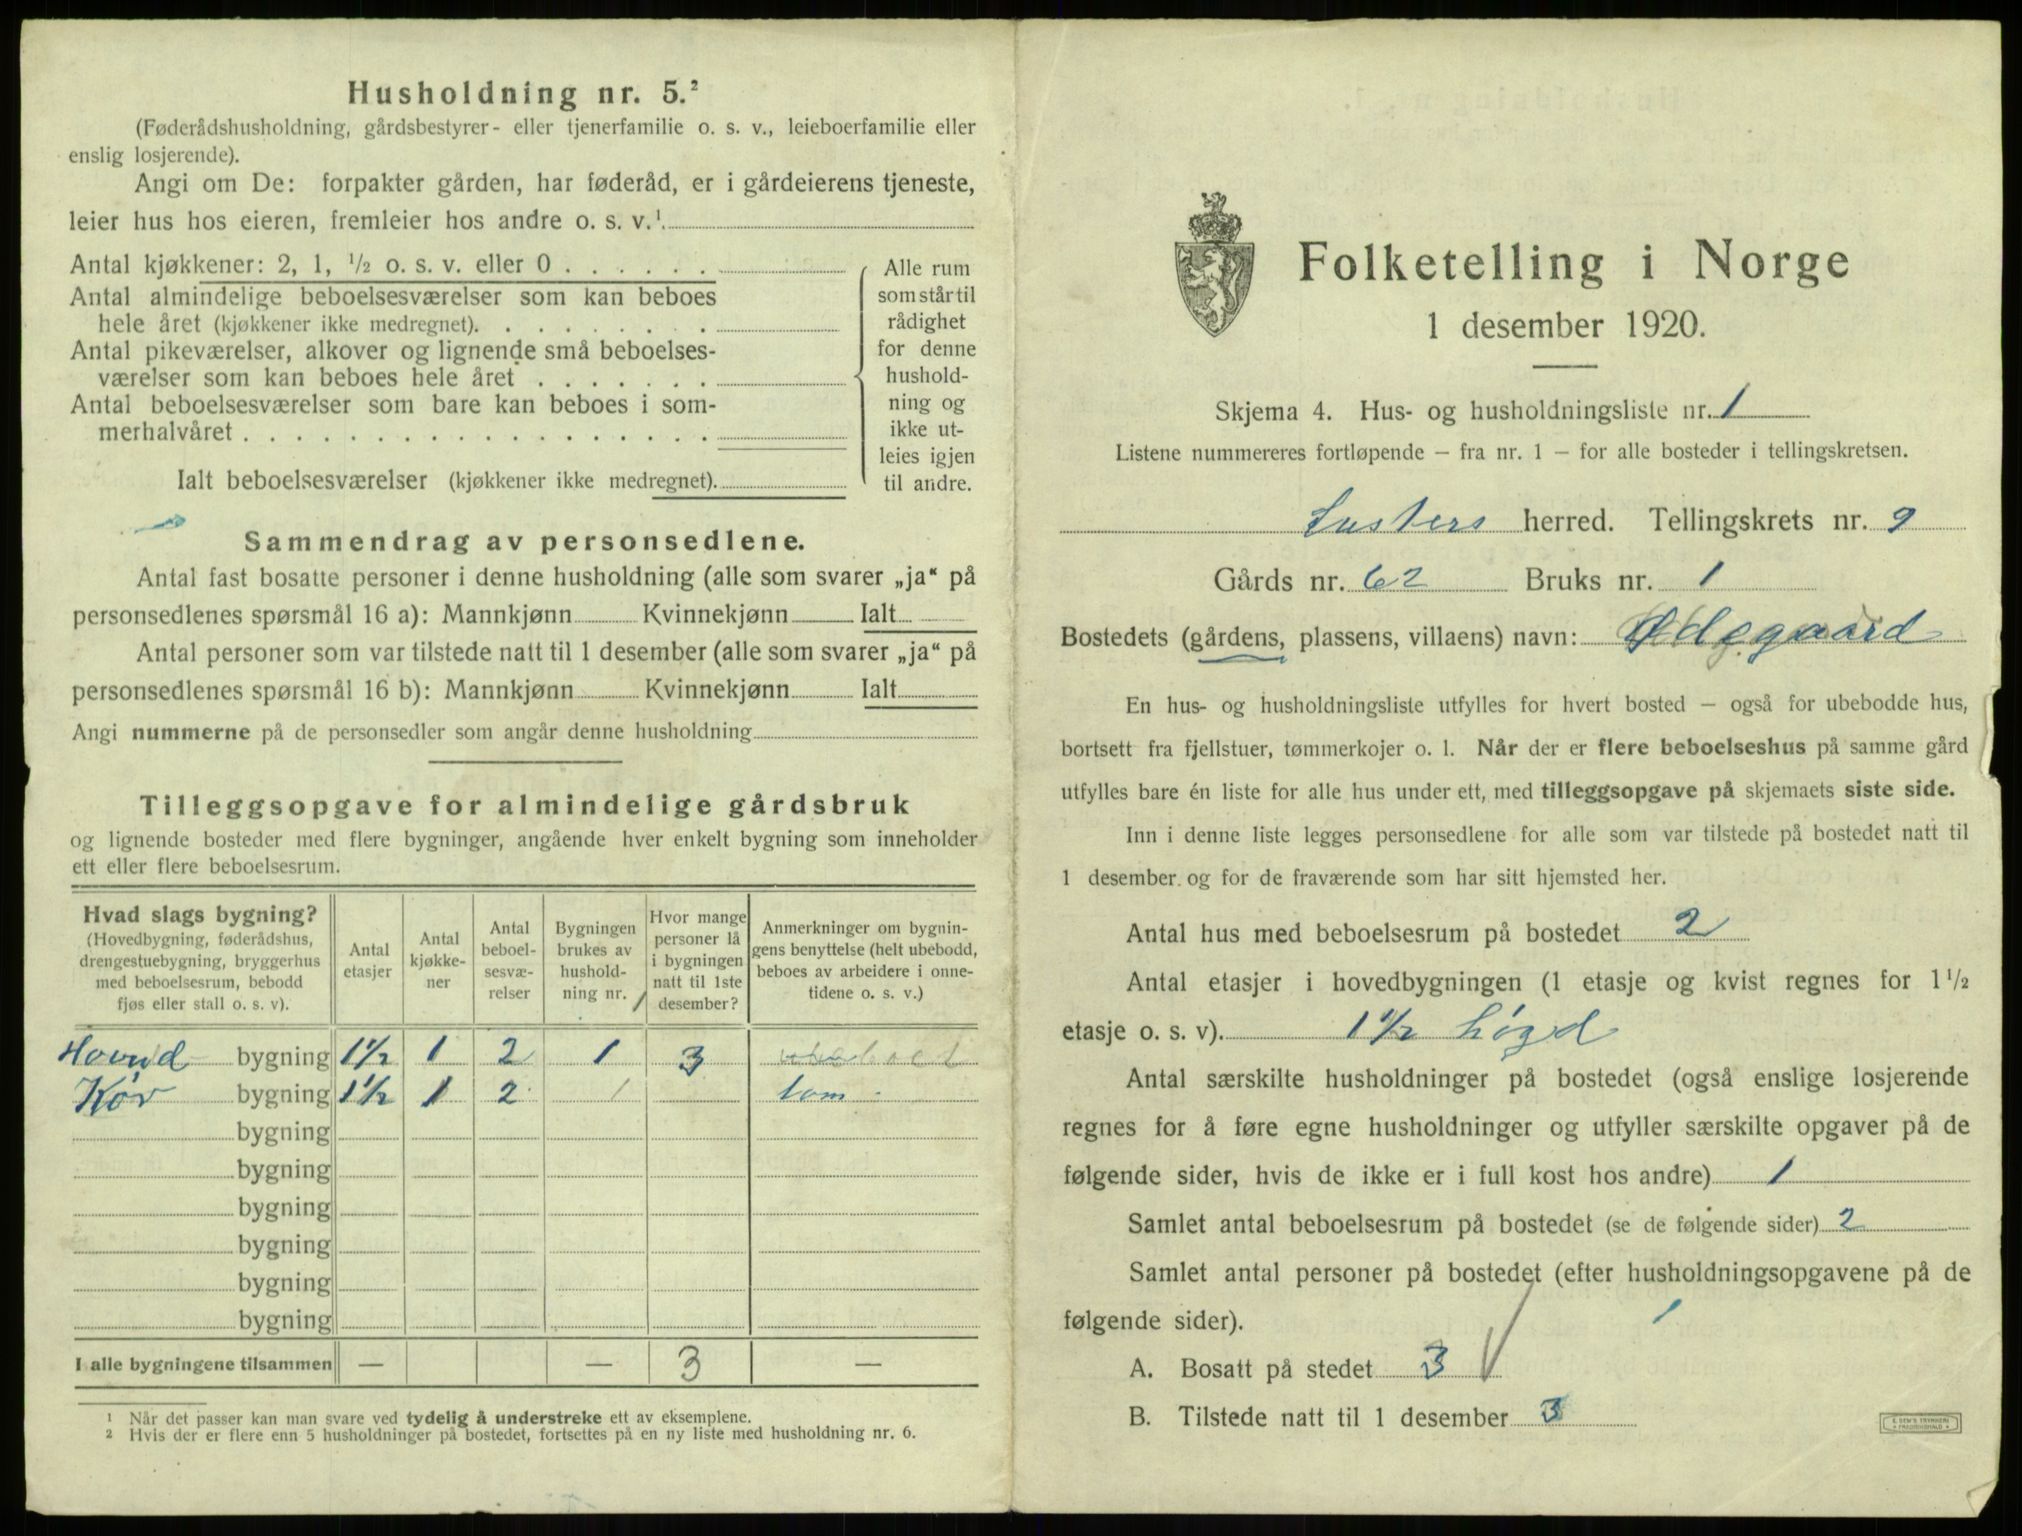 Husholdning nr. 5.²
(Føderådshusholdning, gårdsbestyrer- eller tjenerfamilie o. s. v., leieboerfamilie eller
enslig losjerende).
Angi om De: forpakter gården, har føderåd, er i gårdeierens tjeneste,
leier hus hos eieren, fremleier hos andre o. s. v.¹
Antal kjøkkener: 2, 1, ½ o. s. v. eller 0
Antal almindelige beboelsesværelser som kan beboes
hele året (kjøkkener ikke medregnet).
Antal pikeværelser, alkover og lignende små beboelses-
værelser som kan beboes hele året
Antal beboelsesværelser som bare kan beboes i som-
merhalvåret
Ialt beboelsesværelser (kjøkkener ikke medregnet).
Alle rum
som står til
rådighet
for denne
hushold-
ning og
ikke ut-
leies igjen
til andre.
Sammendrag av personsedlene.
Antal fast bosatte personer i denne husholdning (alle som svarer „ja“ på
personsedlenes spørsmål 16 a): Mannkjønn Kvinnekjønn Ialt
Antal personer som var tilstede natt til 1 desember (alle som svarer „ja“ på
personsedlenes spørsmål 16 b): Mannkjønn Kvinnekjønn Ialt
Angi nummerne på de personsedler som angår denne husholdning
Tilleggsopgave for almindelige gårdsbruk
og lignende bosteder med flere bygninger, angående hver enkelt bygning som inneholder
ett eller flere beboelsesrum.
Hvad slags bygning?
(Hovedbygning, føderådshus,
drengestuebygning, bryggerhus
med beboelsesrum, bebodd
fjøs eller stall o. s. v).
Antal
etasjer
Antal
kjøkke-
ner
Antal
beboel-
sesvæ-
relser
Bygningen
brukes av
hushold-
ning nr.
Hvor mange
personer lå
i bygningen
natt til 1ste
desember?
Anmerkninger om bygnin-
gens benyttelse (helt ubebodd,
beboes av arbeidere i onne-
tidene o. s. v.)
Hovud bygning 1½ 1 2 1 3
Kør bygning 1½ 1 2 1 tom
bygning
bygning
bygning
bygning
bygning
bygning
I alle bygningene tilsammen — — 3 —
¹ Når det passer kan man svare ved tydelig å understreke ett av eksemplene.
² Hvis der er flere enn 5 husholdninger på bostedet, fortsettes på en ny liste med husholdning nr. 6.
Folketelling i Norge
1 desember 1920.
Skjema 4. Hus- og husholdningsliste nr. 1
Listene nummereres fortløpende — fra nr. 1 — for alle bosteder i tellingskretsen.
Lusters herred. Tellingskrets nr. 9
Gårds nr. 62 Bruks nr. 1
Bostedets (gårdens, plassens, villaens) navn: Ødegaard
En hus- og husholdningsliste utfylles for hvert bosted — også for ubebodde hus,
bortsett fra fjellstuer, tømmerkojer o. l. Når der er flere beboelseshus på samme gård
utfylles bare én liste for alle hus under ett, med tilleggsopgave på skjemaets siste side.
Inn i denne liste legges personsedlene for alle som var tilstede på bostedet natt til
1 desember og for de fraværende som har sitt hjemsted her.
Antal hus med beboelsesrum på bostedet 2
Antal etasjer i hovedbygningen (1 etasje og kvist regnes for 1½
etasje o. s. v). 1½ høgd
Antal særskilte husholdninger på bostedet (også enslige losjerende
regnes for å føre egne husholdninger og utfyller særskilte opgaver på de
følgende sider, hvis de ikke er i full kost hos andre) 1
Samlet antal beboelsesrum på bostedet (se de følgende sider) 2
Samlet antal personer på bostedet (efter husholdningsopgavene på de
følgende sider).
A. Bosatt på stedet 3
B. Tilstede natt til 1 desember 3